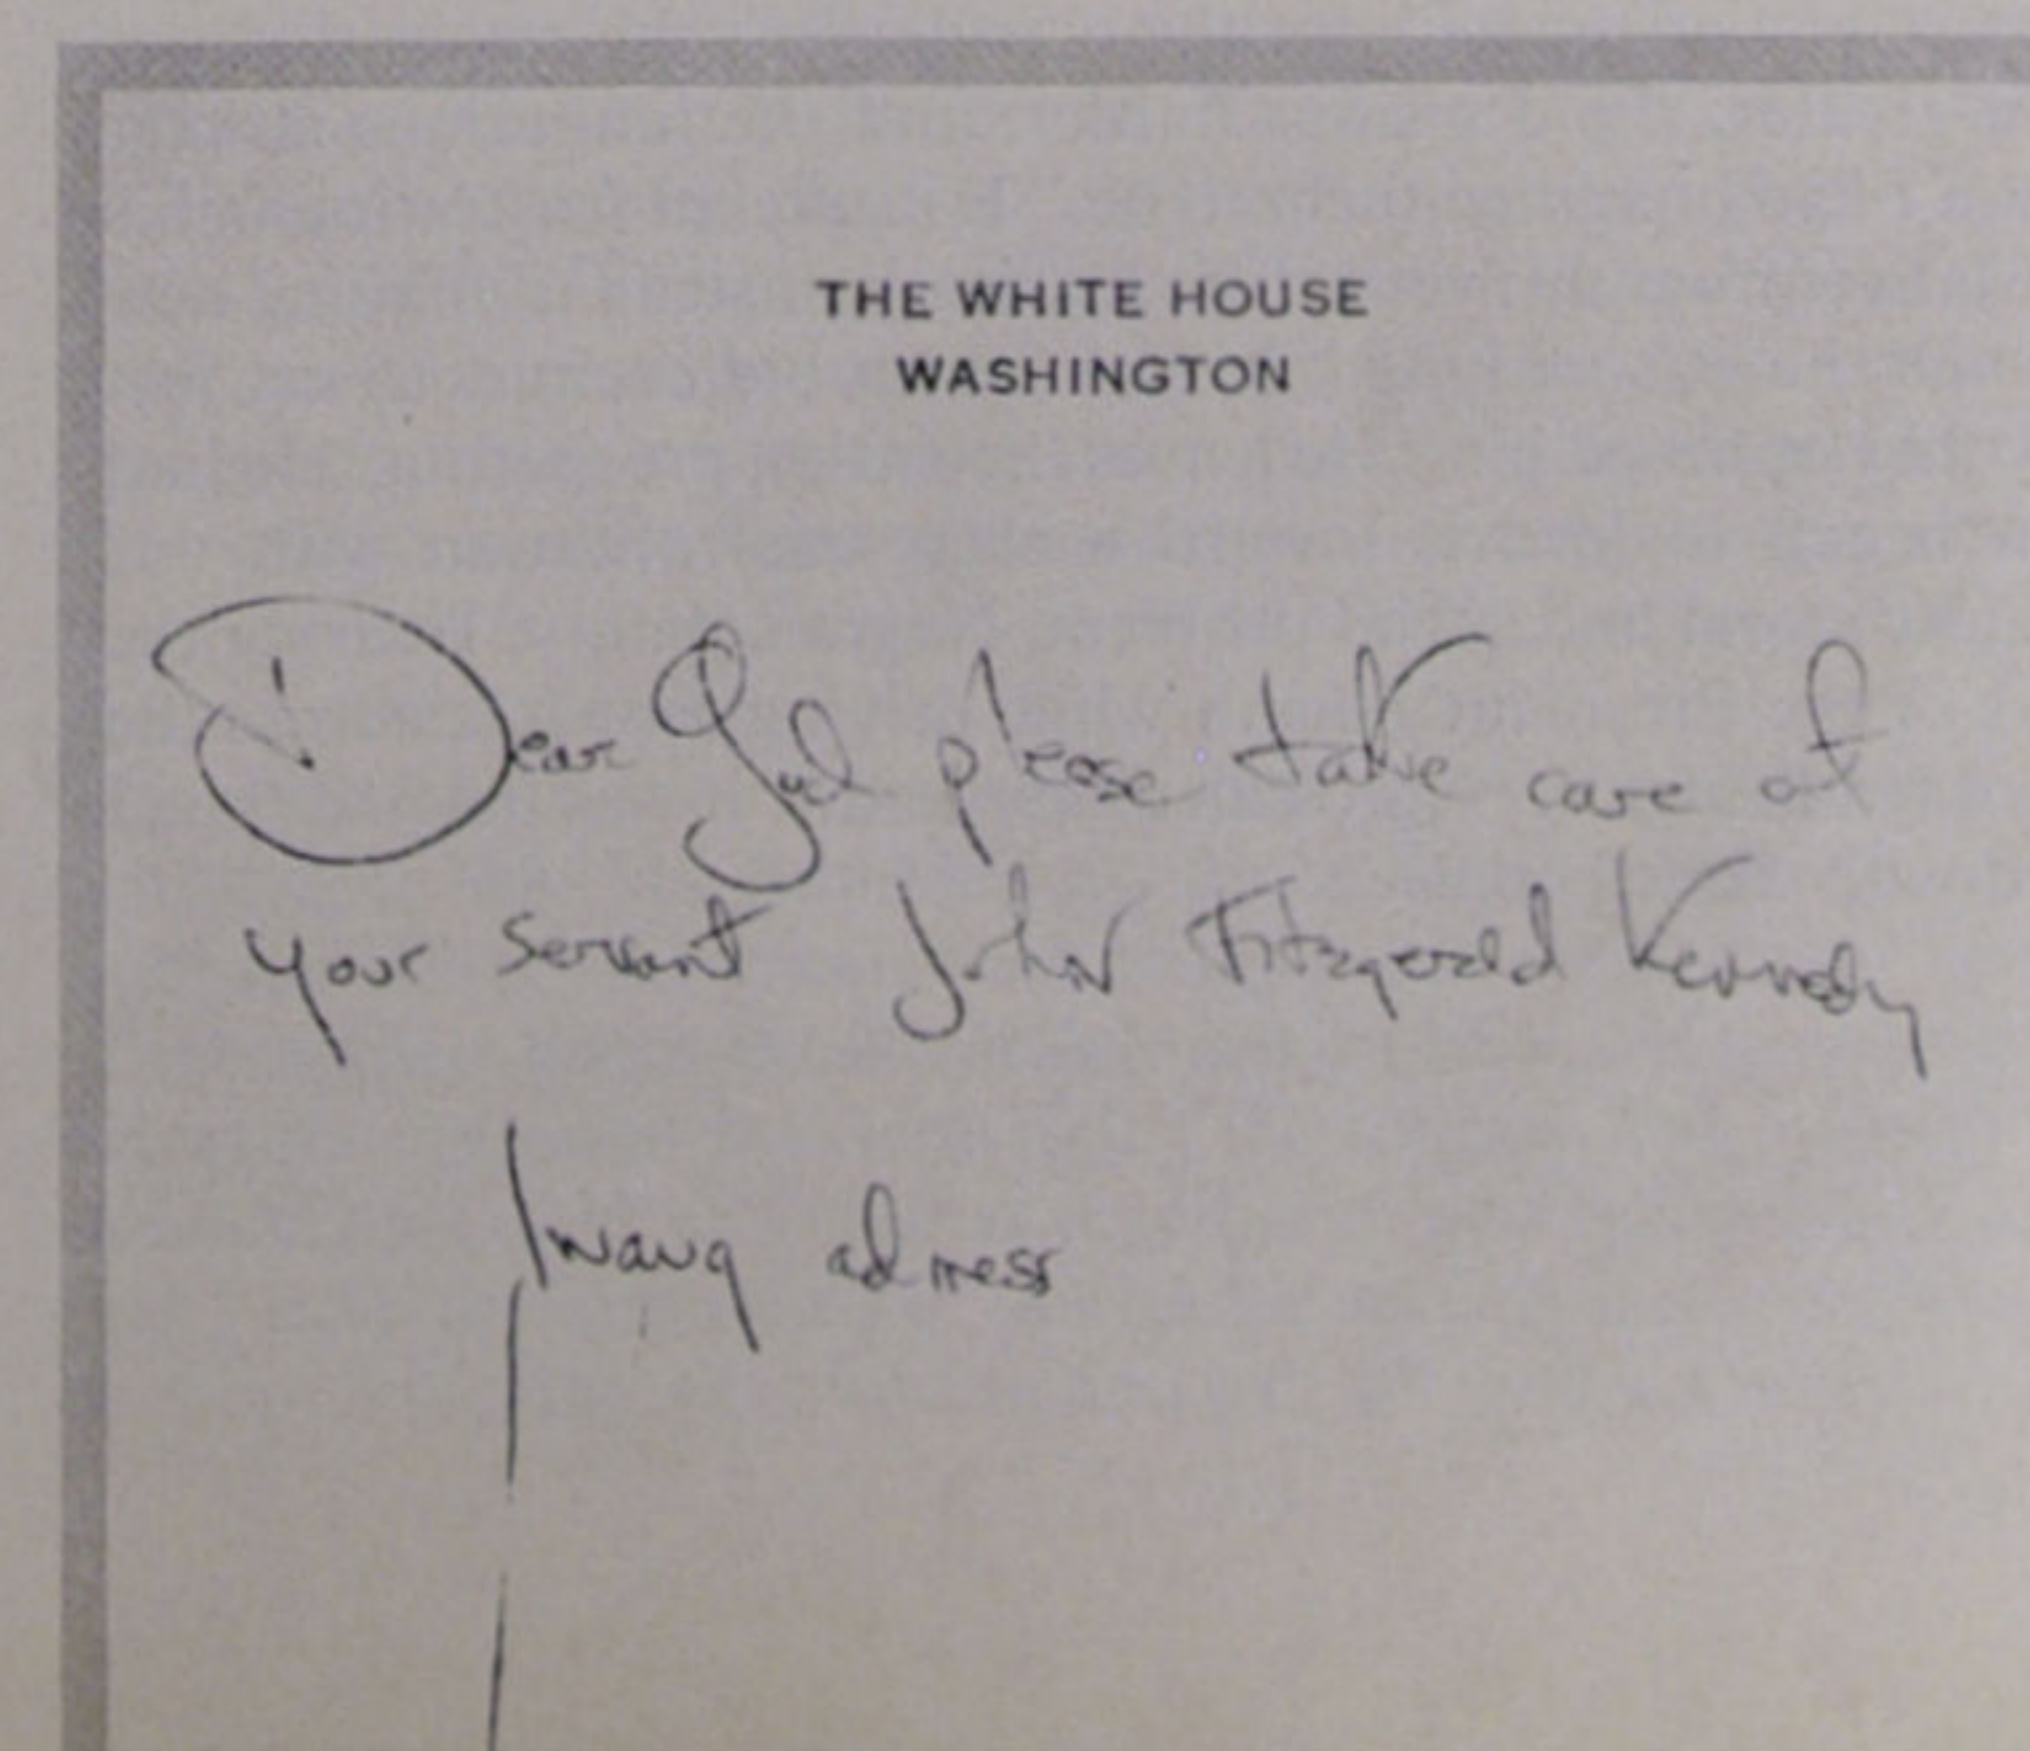 THE WHITE HOUSE
WASHINGTON
Dear God please take care of
your servant John Fitzgerald Kennedy